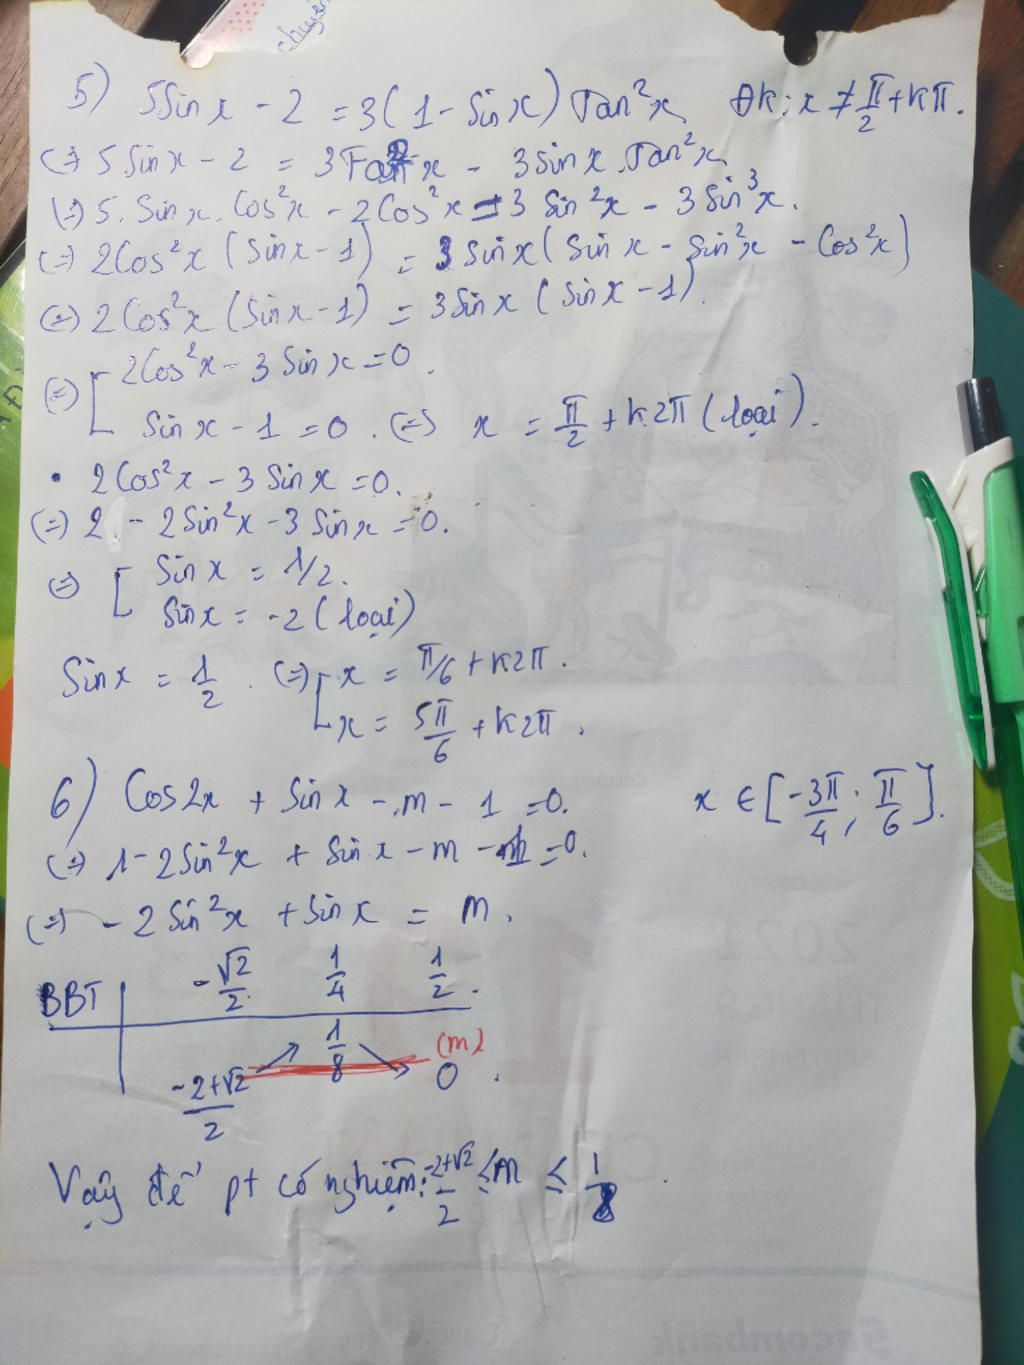 chuyên
5) 5Sin x - 2 = 3(1 - Sin x) Tan²x ĐK: x ≠ π/2 + kπ.
(=) 5 Sin x - 2 = 3Tan²x - 3 Sin x. Tan²x
(=) 5. Sin x. Cos²x - 2Cos²x = 3 Sin²x - 3 Sin³x.
(=) 2Cos²x (Sin x - 1) = 3 Sin x (Sin x - Sin²x - Cos²x)
(=) 2Cos²x (Sin x - 1) = 3 Sin x (Sin x - 1).
(=) [ 2Cos²x - 3 Sin x = 0.
Sin x - 1 = 0. (=) x = π/2 + k2π (loại).
• 2Cos²x - 3 Sin x = 0.
(=) 2 - 2Sin²x - 3 Sin x = 0.
(=) [ Sin x = 1/2.
Sin x = -2 (loại)
Sin x = 1/2. (=) [ x = π/6 + k2π.
x = 5π/6 + k2π.
6) Cos2x + Sin x - m - 1 = 0. x ∈ [-3π/4; π/6].
(=) 1 - 2Sin²x + Sin x - m - 1 = 0.
(=) - 2 Sin²x + Sin x = m.
BBT -√2/2 1/4 1/2.
1/8 (m)
(-2+√2)/2 0.
Vậy để pt có nghiệm: (-2+√2)/2 ≤ m ≤ 1/8